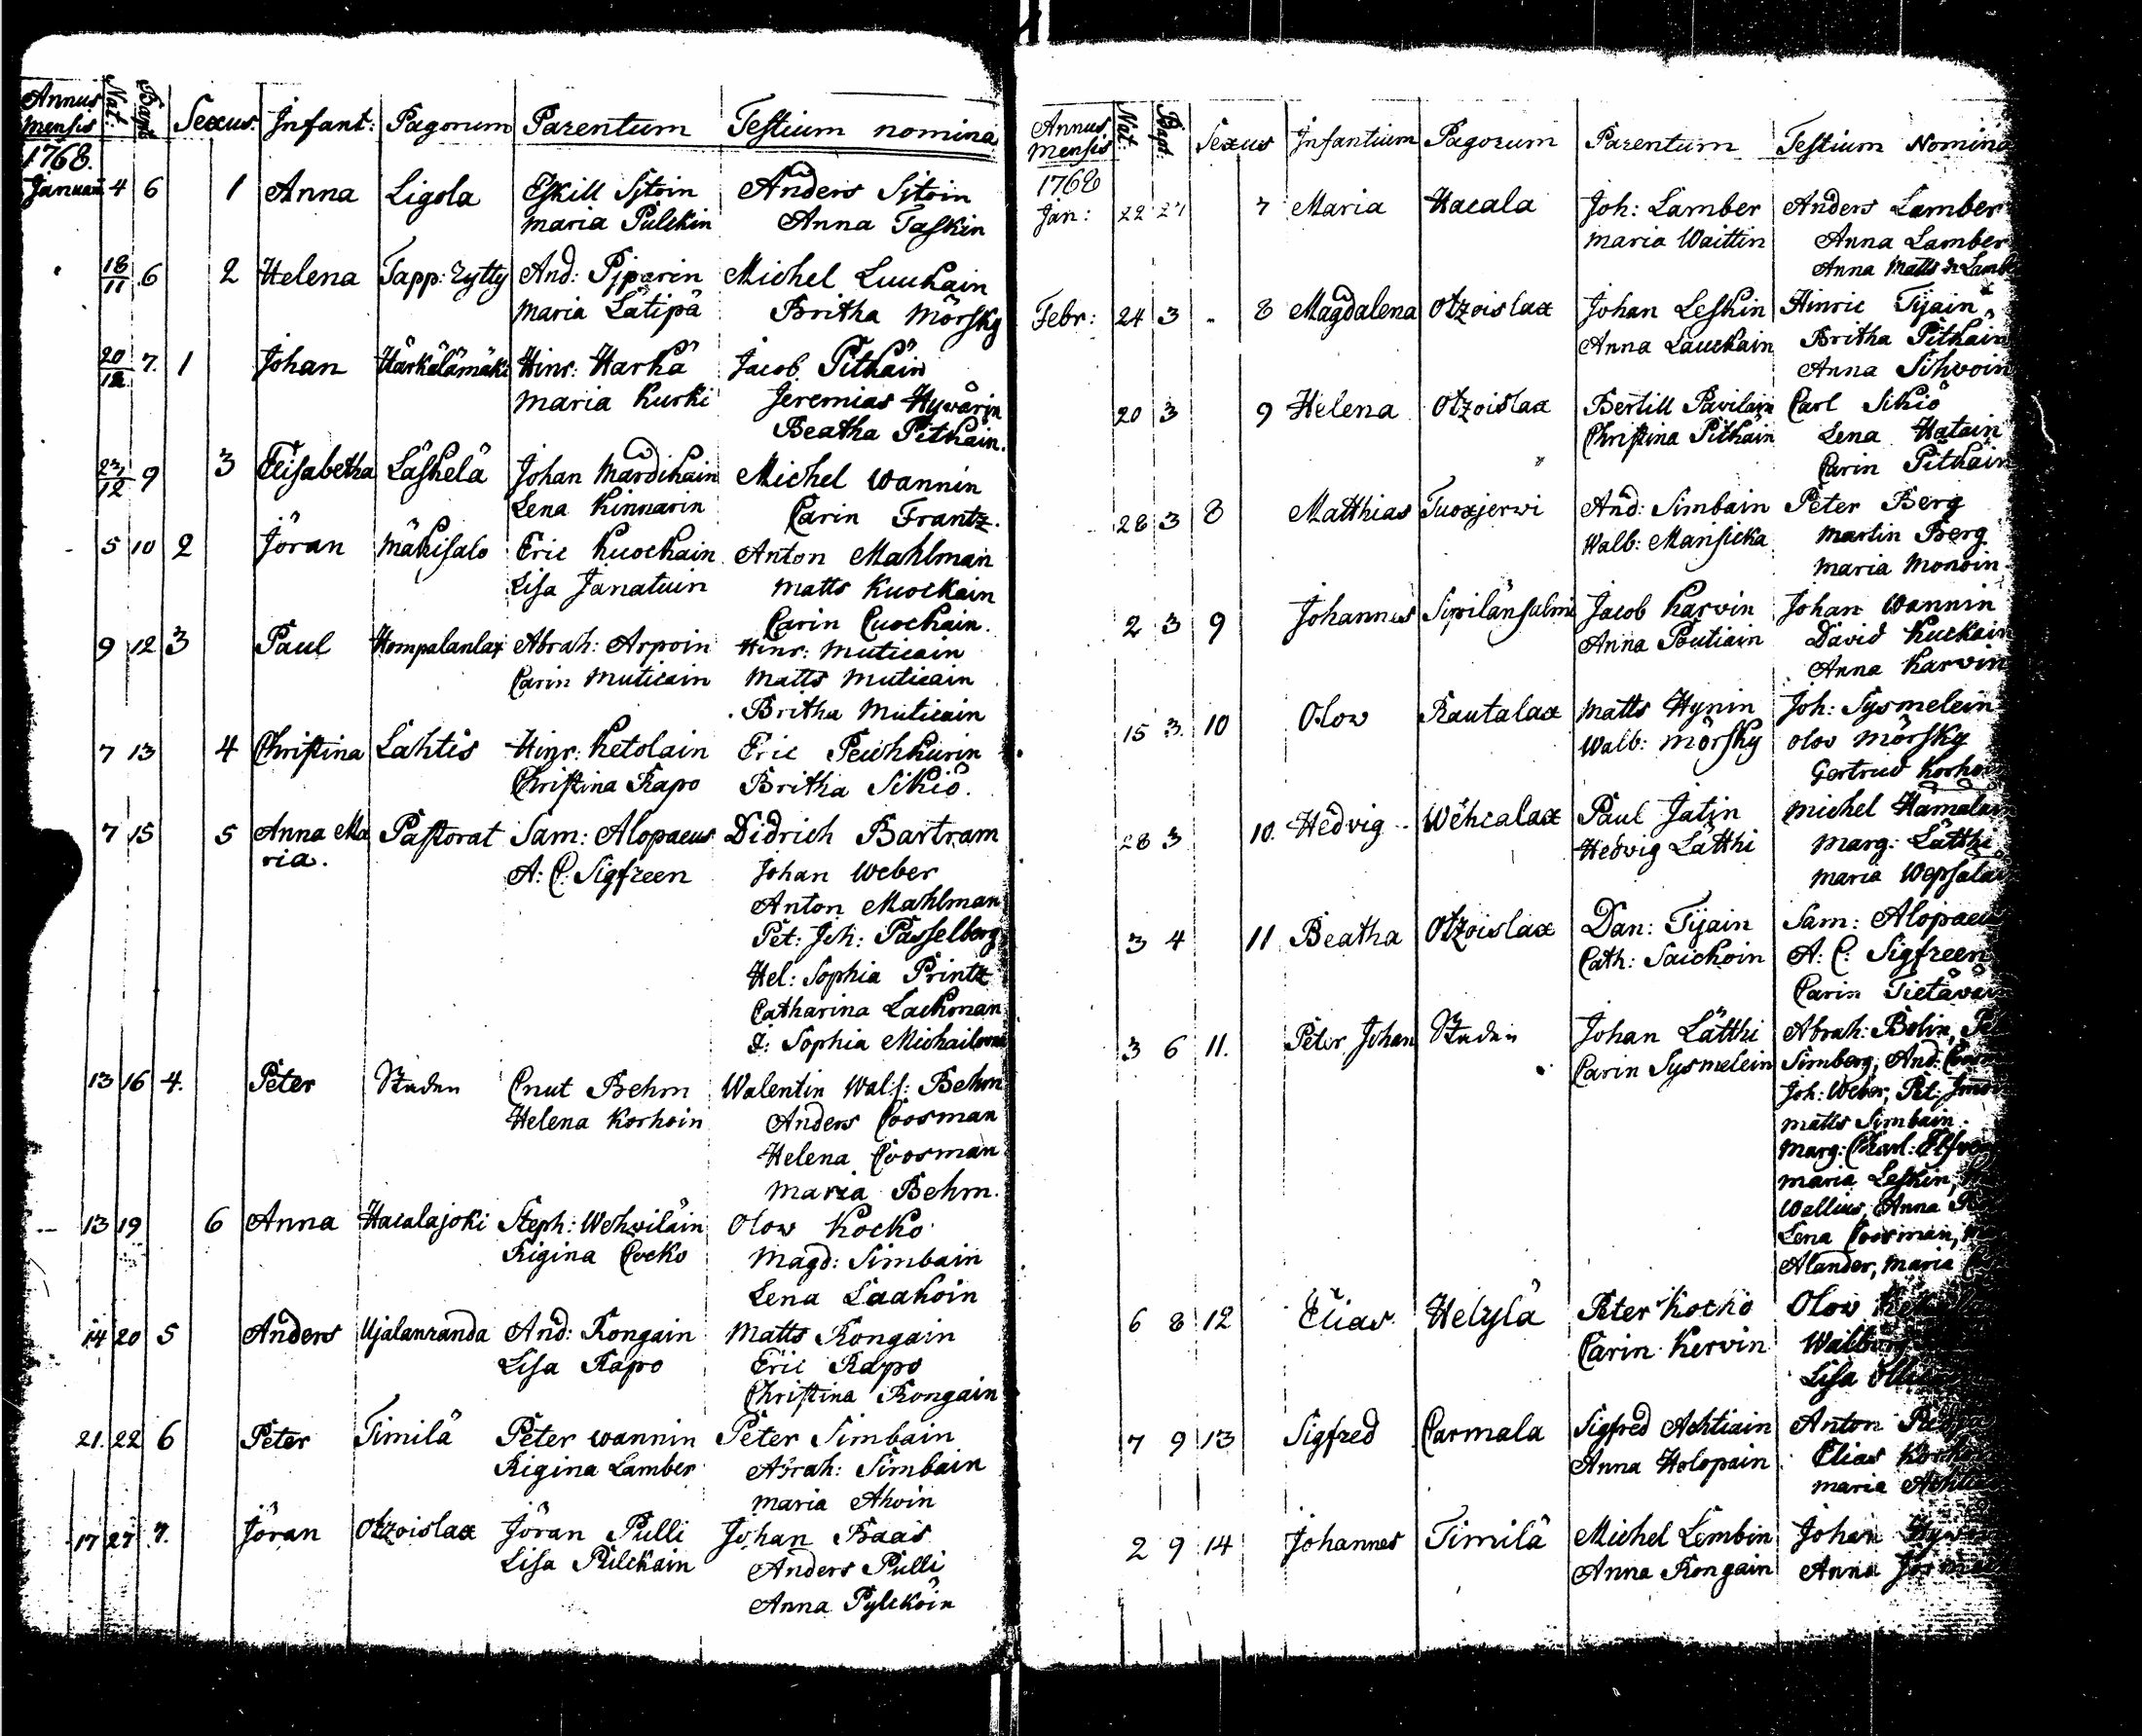 Annus mensis Nat: Bapt: Sexus. Infant: Pagorum Parentum Testium nomina
1768.
Januarii 4 6 1 Anna Ligola Eskill Sitoin Anders Sitoin
Maria Pulckin Anna Taskin
18/11 6 2 Helena Tapp: And: Michel Luukain
Maria Lätipä Britha Mörsky
20/12 7. 1 Johan Härkälämäki Hinr: Harkä Jacob Pitkäin
Maria Kurki Jeremias Hyvärin
Beatha Pitkäin.
27/12 9 3 Elisabetha Läskelä Johan Mardikain Michel Wannin
Lena Kinnarin Carin Frantz.
5 10 2 Jöran Mäkisalo Eric Kuockain Anton Mahlman
Lisa Janatuin Matts Kuockain
Carin Cuockain.
9 12 3 Paul Hompalanlax Abrah: Arpoin Hinr: Muticain
Carin Muticain Matts Muticain
Britha Muticain
7 13 4 Christina Lahtis Hinr: Ketolain Eric Peuhkurin
Christina Rapo Britha Sikiö.
7 15 5 Anna Ma Pastorat Sam: Alopaeus Didrich Bartram
ria. A: C: Sigfreen Johan Weber
Anton Mahlman
Pet: Joh: Passelberg
Hel: Sophia Printz
Catharina Lackman
Sophia Michailowna
13 16 4. Peter Staden Cnut Behm Walentin Walf: Behm
Helena Korhoin Anders Coosman
Helena Coosman
Maria Behm.
13 19 6 Anna Hacalajoki Steph: Wehviläin Olow Kocko
Rigina Cocko Magd: Simbain
Lena Laakoin
14 20 5 Anders Ujalanranda And: Rongain Matts Rongain
Lisa Rapo Eric Rapo
Christina Rongain
21. 22 6 Peter Timilä Peter Wannin Peter Simbain
Rigina Lamber Abrah: Simbain
Maria Ahoin
17 27 7. Jöran Otzoislax Jöran Pulli Johan Baas
Lisa Pulckain Anders Pulli
Anna Pylckoin
Annus Mensis Nat: Bapt: Sexus Infantium Pagorum Parentum Testium Nomina
1768
Jan: 22 27 7 Maria Hacala Joh: Lamber Anders Lamber
Maria Waittin Anna Lamber
Anna Matts
Febr: 24 3 8 Magdalena Otzoislax Johan Leskin Hinric Tijain
Anna Lauckain Britha Pitkäin
Anna Sihvoin
20 3 9 Helena Otzoislax Bertill Pavilain Carl Sikiö
Christina Pitkäin Lena Hatain
Carin Pitkäin
28 3 8 Matthias Tuoxjerwi And: Simbain Peter Berg
Walb: Mansicka Martin Berg
Maria Monoin
2 3 9 Johannes Sipilänsalmi Jacob Karvin Johan Wannin
Anna Poutiain David Kuckain
Anna Karvin
15 3 10 Olow Rautalax Matts Hynin Joh: Sysmelein
Walb: Mörsky Olov Mörsky
Gertrud
28 3 10. Hedvig Wehcalax Paul Jatin Michel
Hedvig Lätthi Marg: Lätthi
Maria
3 4 11 Beatha Otzoislax Dan: Tijain Sam:
Cath: Saickoin A: C: Sigfreen
Carin
3 6 11. Peter Johan Staden Johan Lätthi Abrah: Bolin,
Carin Sysmelein Simberg, And:
Joh: Weber, Pet:
Matts Simbain.
Marg: Charl:
Maria Leskin,
Wallius, Anna
Lena Coosman,
Alander, Maria
6 8 12 Elias Helylä Peter Kocko Olow
Carin Kervin
Lisa
7 9 13 Sigfred Carmala Sigfred Achtiain Anton
Anna Holopain Elias
Maria
2 9 14 Johannes Timilä Michel Lembin Johan
Anna Rongain Anna